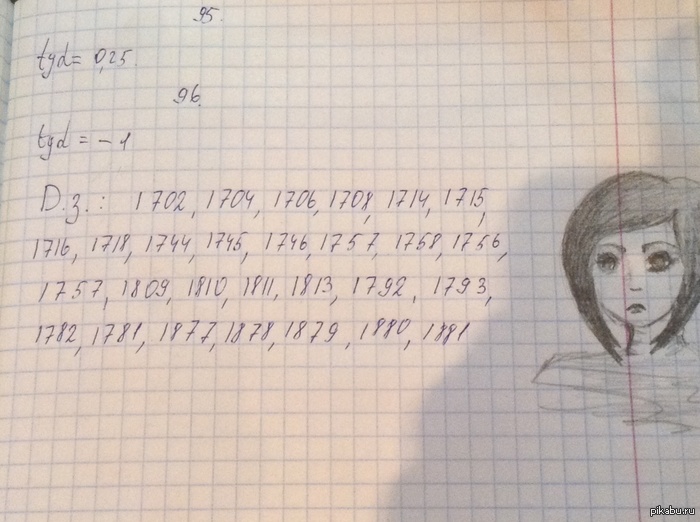 95.
tgα = 0,25.
96.
tgα = - 1
D.з.: 1702, 1704, 1706, 1708, 1714, 1715,
1716, 1718, 1744, 1745, 1746, 1757, 1758, 1756,
1757, 1809, 1810, 1811, 1813, 1792, 1793,
1782, 1781, 1877, 1878, 1879, 1880, 1881
pikabu.ru